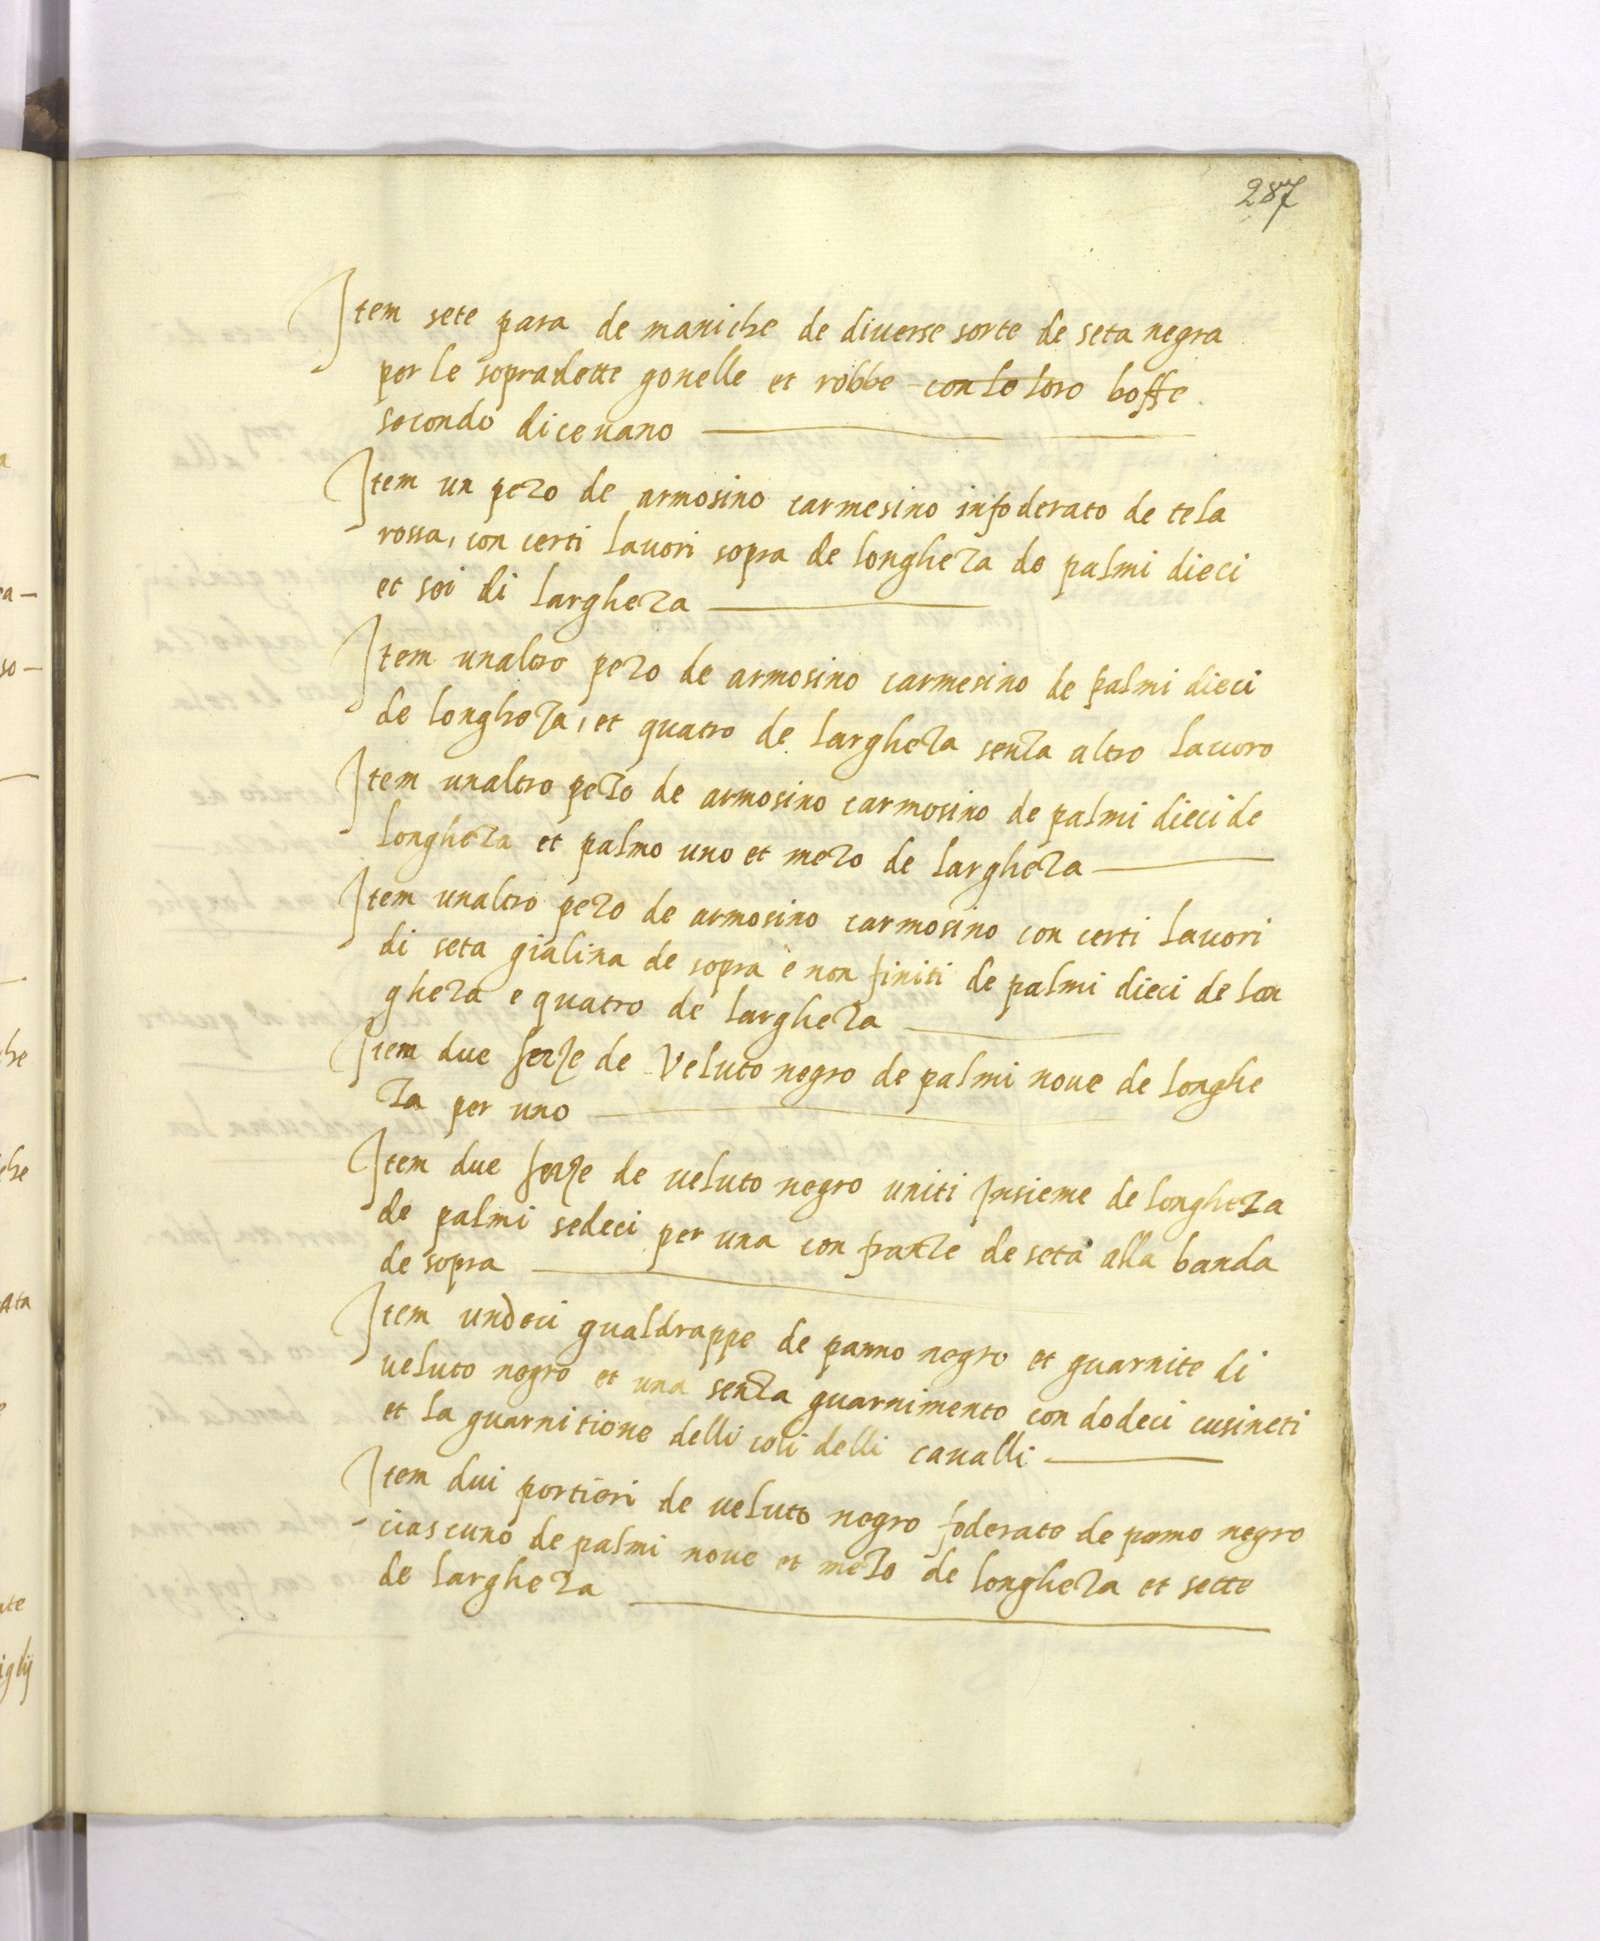 287
Item sete para de maniche de diverse sorte de seta negra
per le sopradette gonelle et robbe con le loro boffe
secondo dicevano
Item un pezo de armosino carmesino infoderato de tela
rossa, con certi lavori sopra de longheza de palmi dieci
et sei di largheza
Item unaltro pezo de armosino carmesino de palmi dieci
de longheza, et quatro de largheza senza altro lavoro
Item unaltro pezo de armosino carmosino de palmi dieci de
longheza et palmo uno et mezo de largheza
Item unaltro pezo de armosino carmosino con certi lavori
di seta gialina de sopra e non finiti de palmi dieci de lon
gheza e quatro de largheza
Item due ferze de Veluto negro de palmi nove de longhe
za per uno
Item due ferze de veluto negro uniti Insieme de longheza
de palmi sedeci per una con franze de seta alla banda
de sopra
Item undeci gualdrappe de panno negro et guarnite di
veluto negro et una senza guarnimento con dodeci cusineti
et la guarnitione delli coli delli cavalli
Item dui portieri de veluto negro foderato de panno negro
ciascuno de palmi nove et mezo de longheza et sette
de largheza